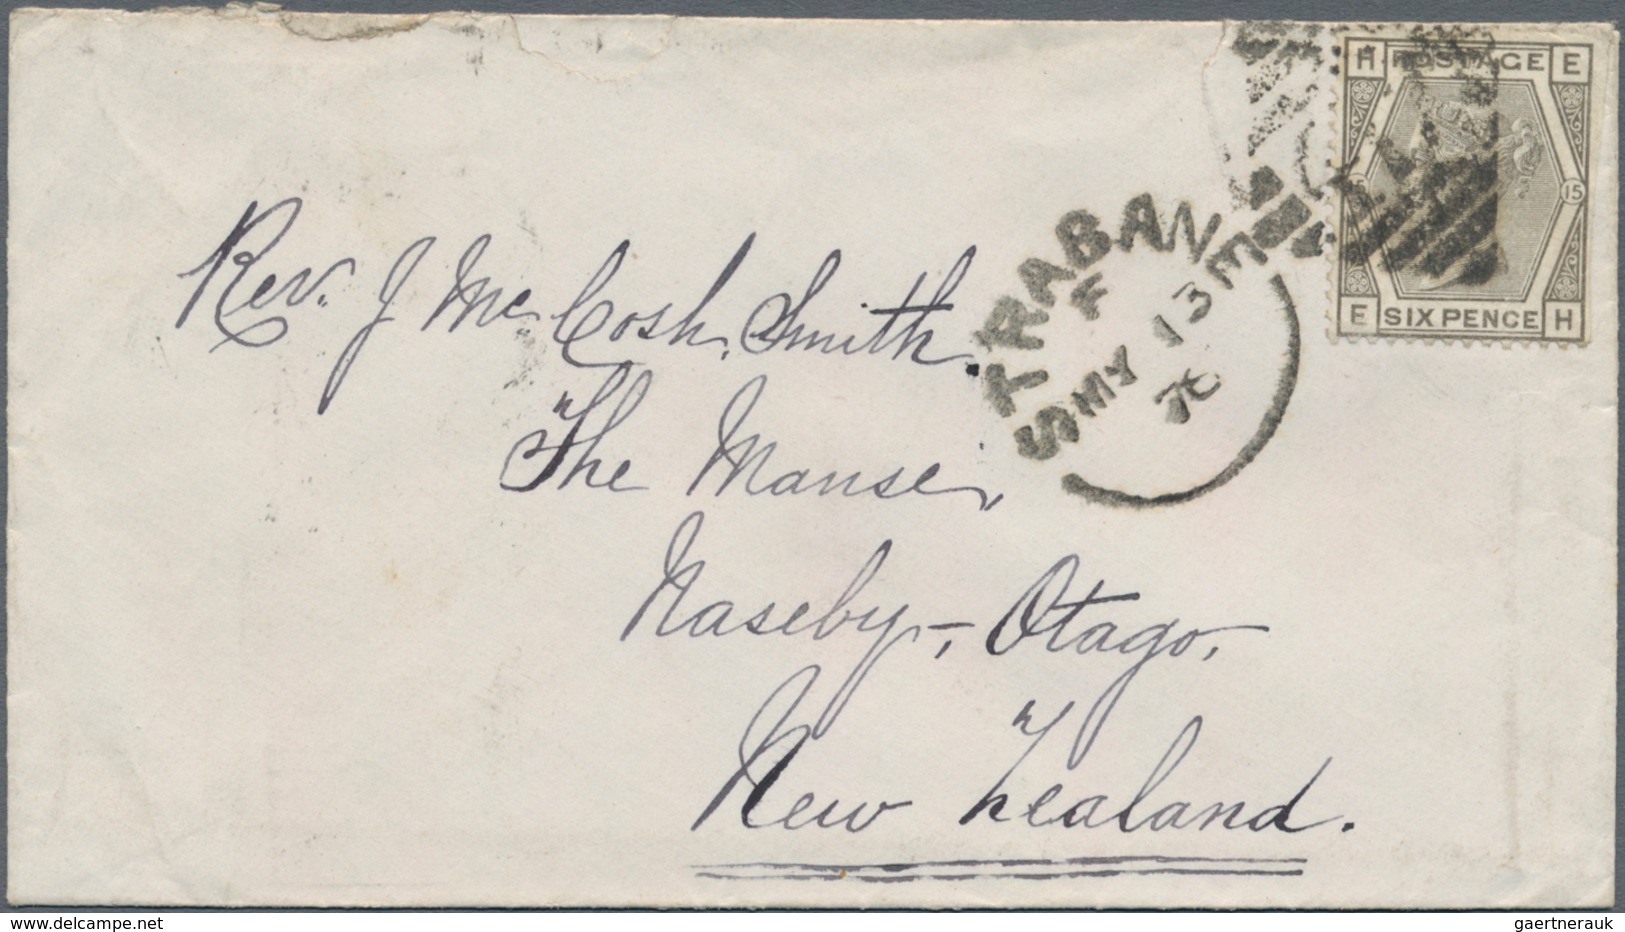 H POSTAGE E
15
E SIXPENCE H
STRABANE
F
MY 13
Rev. J McCosh Smith.
The Manse,
Naseby, Otago,
New Zealand.
gaertnerauk